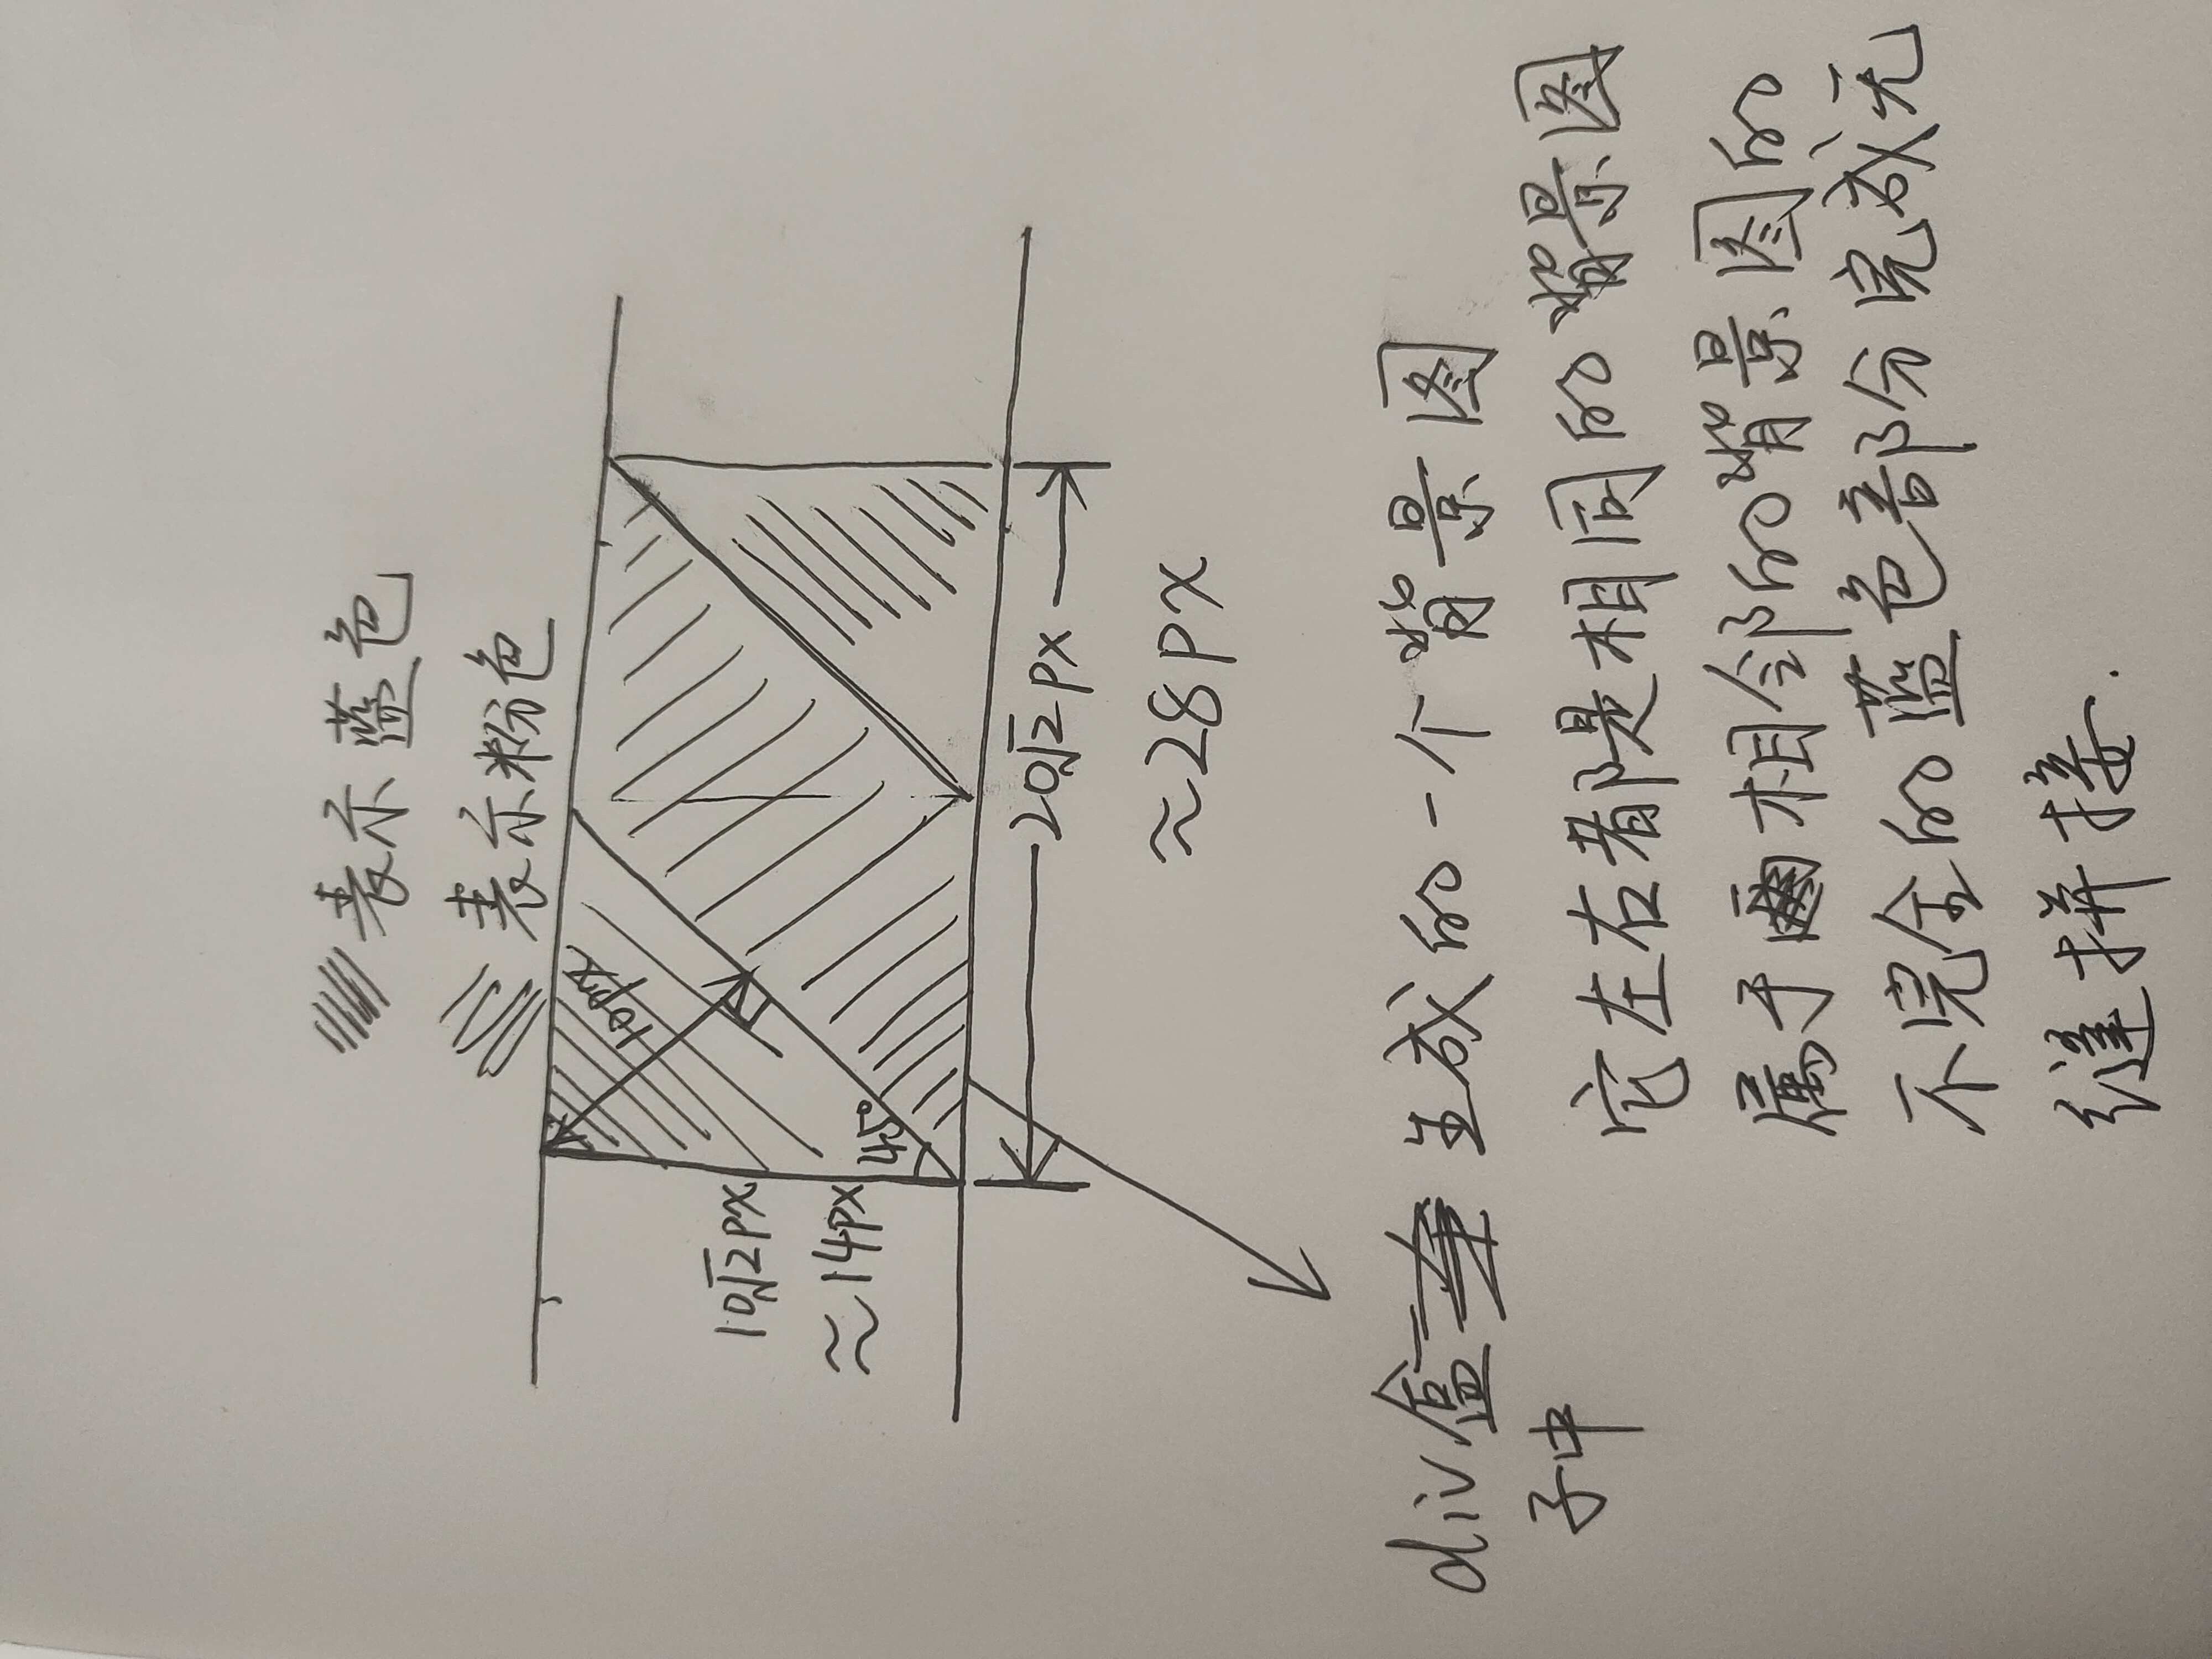 表示蓝色
表示粉色
10px
10√2px
≈14px
45°
20√2px
≈28px
div盒 生成的一个背景图
子中
它左右都是相同的背景图
属于相邻的背景图的
不完全的蓝色部分完成无
缝拼接.